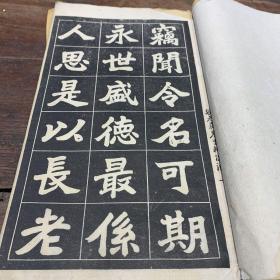 竊聞令名可期
永世盛德最係
人思是以長老